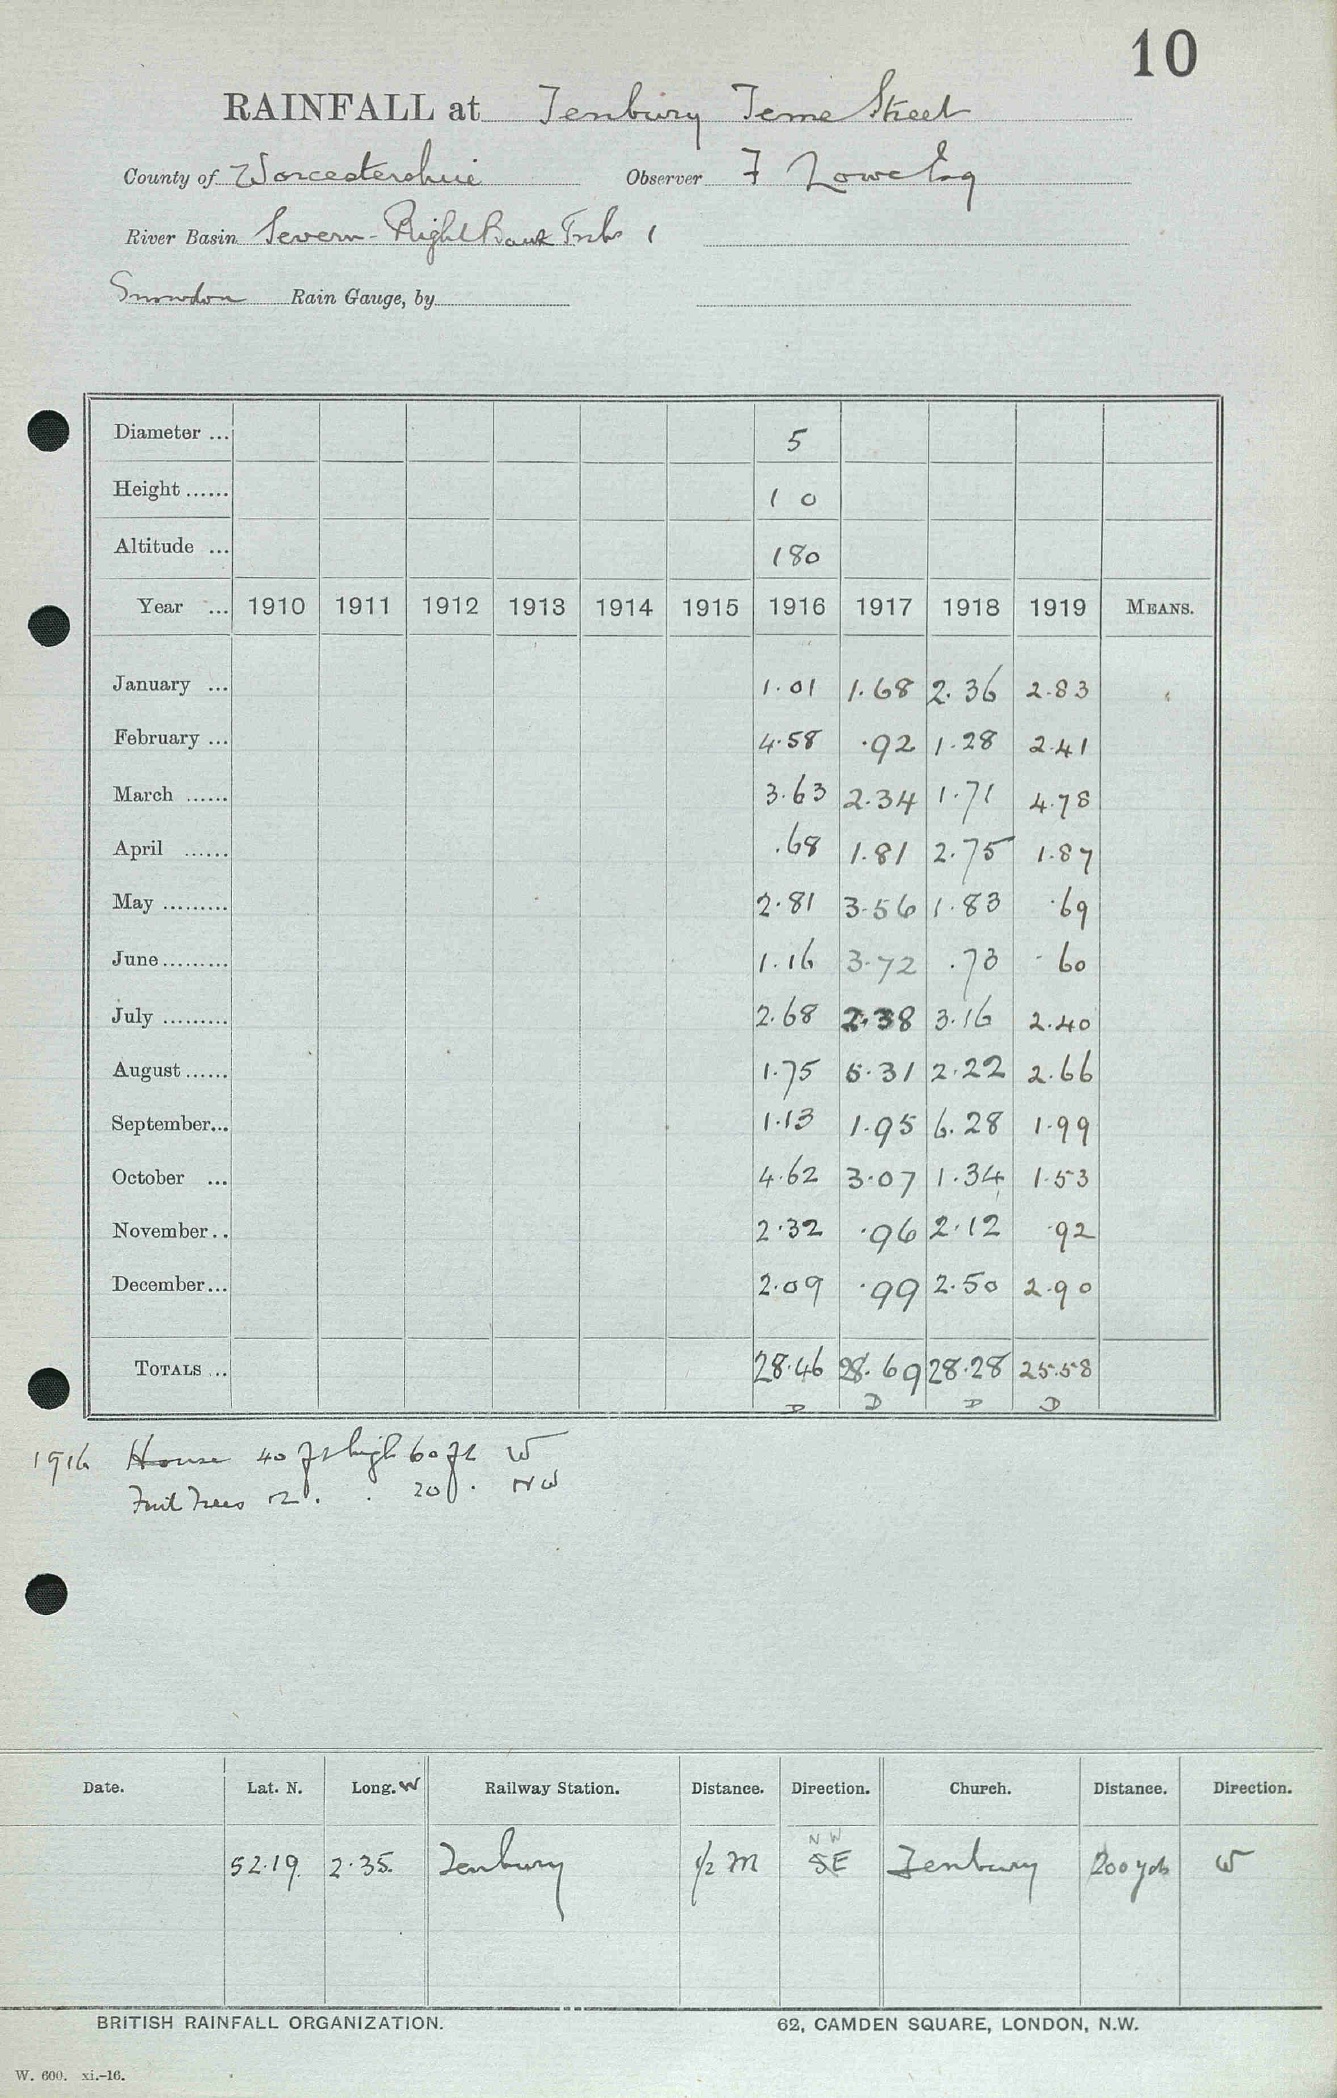 10
RAINFALL at Tenbury Teme Street
County of Worcestershire Observer F Lowe Esq
River Basin Severn - Right Bank Tribs 1
Snowdon Rain Gauge, by
Diameter ... 5
Height ...... 1 0
Altitude ... 180
Year ... 1910 1911 1912 1913 1914 1915 1916 1917 1918 1919 MEANS.
January ... 1.01 1.68 2.36 2.83
February ... 4.58 .92 1.28 2.41
March ...... 3.63 2.34 1.71 4.78
April ...... .68 1.81 2.75 1.87
May ......... 2.81 3.56 1.83 .69
June ......... 1.16 3.72 .73 .60
July ......... 2.68 2.38 3.16 2.40
August ...... 1.75 5.31 2.22 2.66
September... 1.13 1.95 6.28 1.99
October ... 4.62 3.07 1.34 1.53
November.. 2.32 .96 2.12 .92
December... 2.09 .99 2.50 2.90
TOTALS ... 28.46 28.69 28.28 25.58
D D D D
1916 House 40 ft high 60 ft W
Fruit Trees 12 . . 20 . NW
Date. Lat. N. Long. W Railway Station. Distance. Direction. Church. Distance. Direction.
NW
52.19. 2.35. Tenbury 1/2 M SE Tenbury 200 yds W
BRITISH RAINFALL ORGANIZATION. 62, CAMDEN SQUARE, LONDON, N.W.
W. 600. xi.-16.